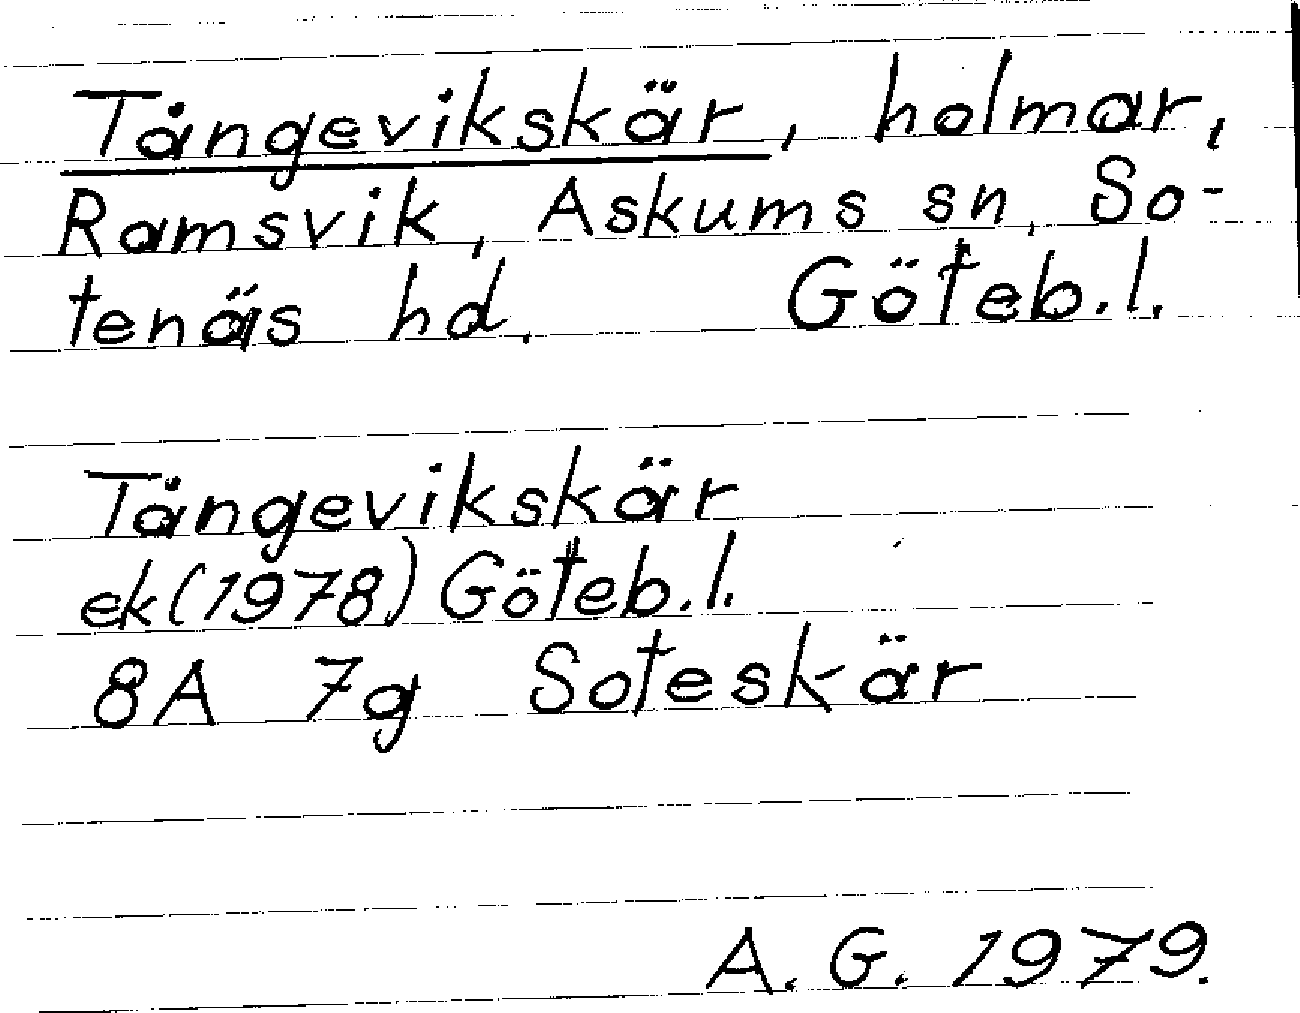 Tångevikskär, holmar,
Ramsvik, Askums sn, So-
tenäs hd. Göteb.l.
Tångevikskär
ek(1978) Göteb.l.
8A 7g Soteskär
A.G. 1979.